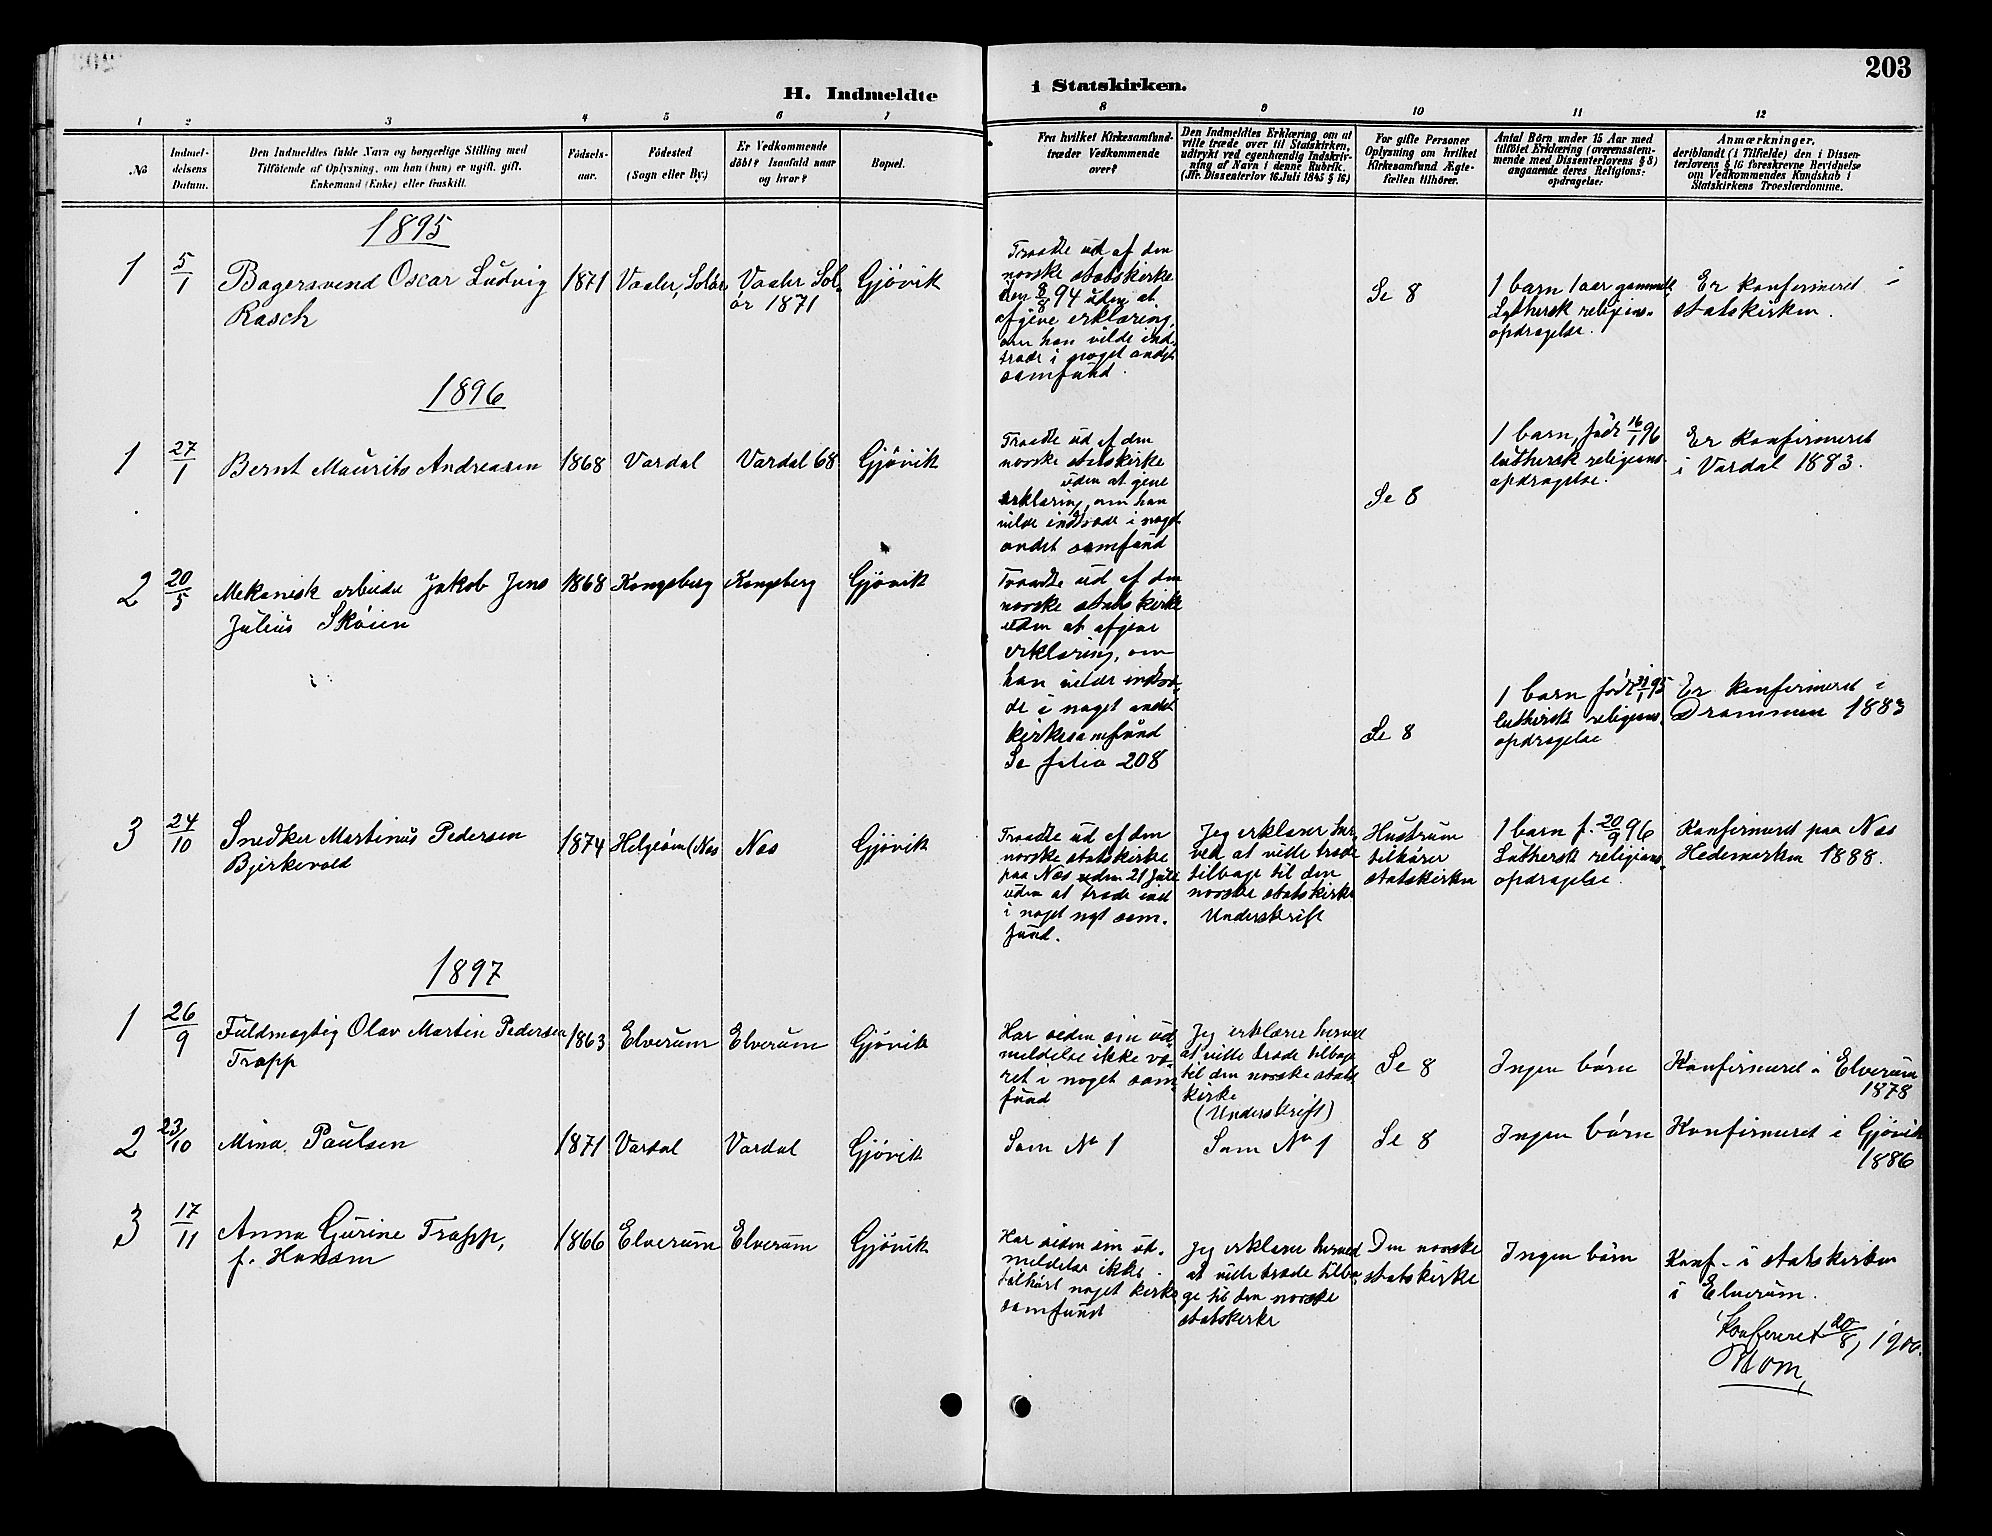 203
H. Indmeldte
i Statskirken.
1 2 3 4 5 6 7 8 9 10 11 12
No
Indmel-
delsens
Datum.
Den Indmeldtes fulde Navn og borgerlige Stilling med
Tilföiende af Oplysning, om han (hun) er ugift, gift,
Enkemand (Enke) eller fraskilt.
Födsels-
aar.
Födested
(Sogn eller By.)
Er Vedkommende
döbt? Isaafald naar
og hvor?
Bopæl.
Fra hvilket Kirkesamfund-
træder Vedkommende
over?
Den Indmeldtes Erklæring om at
ville træde over til Statskirken,
udtrykt ved egenhændig Indskriv-
ning af Navn i denne Rubrik.
(Jfr. Dissenterlov 16. Juli 1845 § 16)
For gifte Personer
Oplysning om hvilket
Kirkesamfund Ægte-
fællen tilhörer.
Antal Börn under 15 Aar med
tilföiet Erklæring (overensstem-
mende med Dissenterlovens § 8)
angaaende deres Religions-
opdragelse.
Anmærkninger,
deriblandt (i Tilfælde) den i Dissen-
terlovens § 16 foreskrevne Bevidnelse
om Vedkommendes Kundskab i
Statskirkens Troeslærdomme.
1895
1
5/1
Bagersvend Oscar Ludvig
Rasch
1871
Vaaler, Solør
Vaaler Sol-
ør 1871
Gjøvik
Traadte ud af den
norske statskirke
den 8/8 94 uden at
afgive erklæring,
om han vilde ind-
træde i noget andet
samfund.
Se 8
1 barn 1 aar gammelt
Luthersk religions-
opdragelse.
Er konfirmeret i
statskirken.
1896
1
27/1
Bernt Maurits Andreasen
1868
Vardal
Vardal 68
Gjøvik
Traadte ud af den
norske statskirke
uden at give
erklæring, om han
vilde indtræde i noget
andet samfund
Se 8
1 barn, født 16/1 96
luthersk religions-
opdragelse.
Er konfirmeret
i Vardal 1883.
2
20/5
Mekanisk arbeider Jakob Jens
Julius Skøien
1868
Kongsberg
Kongsberg
Gjøvik
Traadte ud af den
norske statskirke
uden at afgive
erklæring, om
han vilde indtræ-
de i noget andet
kirkesamfund
Se folio 208
Se 8
1 barn født 95
luthersk religions-
opdragelse
Er konfirmeret i
Drammen 1883
3
24/10
Snedker Martinus Pedersen
Bjerkevold
1874
Helgøen (Nes
Nes
Gjøvik
Traadte ud af den
norske statskirke
paa Nes den 21 Juli
uden at træde ind
i noget nyt sam-
fund.
Jeg erklærer her-
ved at ville træde
tilbage til den
norske statskirke
Underskrift
Hustruen
tilhører
statskirken
1 barn f. 20/9 96
Luthersk religions-
opdragelse.
Konfirmeret paa Nes
Hedemarken 1888.
1897
1
26/9
Fuldmægtig Olav Martin Pedersen
Trapp
1863
Elverum
Elverum
Gjøvik
Har siden sin ud-
meldelse ikke væ-
ret i noget sam-
fund
Jeg erklærer herved
at ville træde tilbage
til den norske stats-
kirke
(Underskrift)
Se 8
Ingen børn
Konfirmeret i Elverum
1878
2
23/10
Mina Paulsen
1871
Vardal
Vardal
Gjøvik
Som No 1
Som No 1
Se 8
Ingen børn
Konfirmeret i Gjøvik
1886
3
17/11
Anna Gurine Trapp,
f. Hansen
1866
Elverum
Elverum
Gjøvik
Har siden sin ud-
meldelse ikke
tilhørt noget kirke-
samfund
Jeg erklærer herved
at ville træde tilba-
ge til den norske
statskirke
Den norske
statskirke
Ingen børn
Konf. i statskirken
i Elverum.
Konfereret 20/8, 1900.